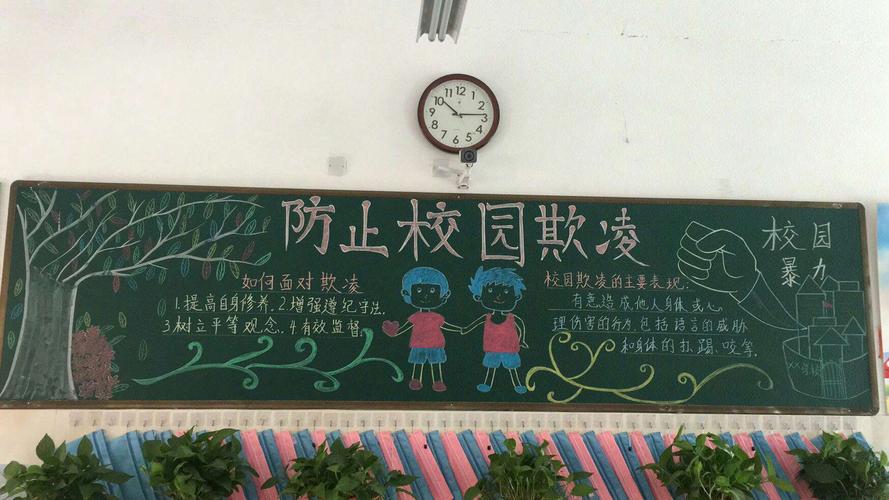 防止校园欺凌
如何面对欺凌
1.提高自身修养.2增强遵纪守法.
3树立平等观念.4.有效监督.
校园欺凌的主要表现:
有意造成他人身体或心
理伤害的行为,包括语言的威胁
和身体的打、踢、咬等.
校园
暴力
12
1
2
3
4
5
6
7
8
9
10
11